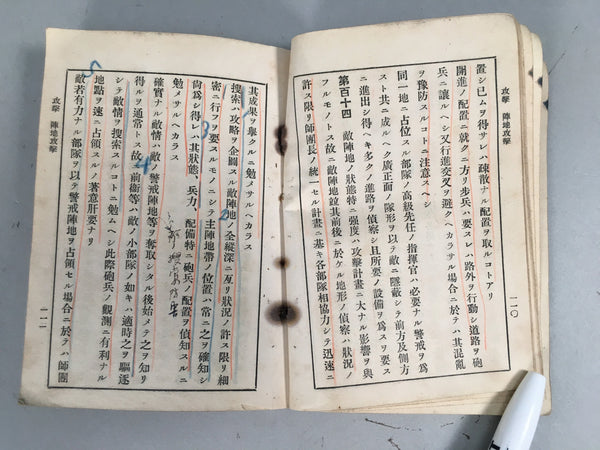 攻擊 陣地攻擊
一一〇
置シ已ムヲ得サレハ疎散ナル配置ヲ取ルコトアリ
開進ノ配置ニ就クニ方リ步兵ハ要スレハ路外ヲ行動シ道路ヲ砲
兵ニ讓ルヘシ又行進交叉ヲ避クヘカラサル場合ニ於テハ其混亂
ヲ豫防スルコトニ注意スヘシ
同一地ニ占位スル部隊ノ高級先任ノ指揮官ハ必要ナル警戒ヲ爲
スト共ニ成ルヘク廣正面ノ隊形ヲ以テ敵ニ隱蔽シテ前方及側方
ニ進出シ得ヘキ多クノ進路ヲ偵察シ且所要ノ設備ヲ爲スヲ要ス
第百十四 敵陣地ノ狀態特ニ强度ハ攻擊計畫ニ大ナル影響ヲ與
フルモノトス故ニ敵陣地竝其前後ニ於ケル地形ノ偵察ハ狀況ノ
許ス限リ師團長ノ統一セル計畫ニ基キ各部隊相協力シテ迅速ニ
攻擊 陣地攻擊
一一一
其成果ヲ擧クルニ勉メサルヘカラス
搜索ハ攻略ヲ企圖スル敵陣地ノ全縱深ニ亙リ狀況ノ許ス限リ細
密ニ行フヲ要スルモノニシテ主陣地帶ノ位置ハ常ニ之ヲ確知シ
尙爲シ得レハ其狀態、兵力、配備特ニ砲兵ノ配置ヲ偵知スルニ
勉メサルヘカラス
確實ナル敵情ハ敵ノ警戒陣地等ヲ奪取シタル後始メテ之ヲ知リ
得ルヲ通常トス故ニ前衞等ハ敵ノ小部隊ノ如キハ適時之ヲ驅逐
シテ敵情ヲ搜索スルコトニ勉ムヘシ此際砲兵ノ觀測ニ有利ナル
地點ヲ速ニ占領スルノ著意肝要ナリ
敵若有力ナル部隊ヲ以テ警戒陣地ヲ占領セル場合ニ於テハ師團